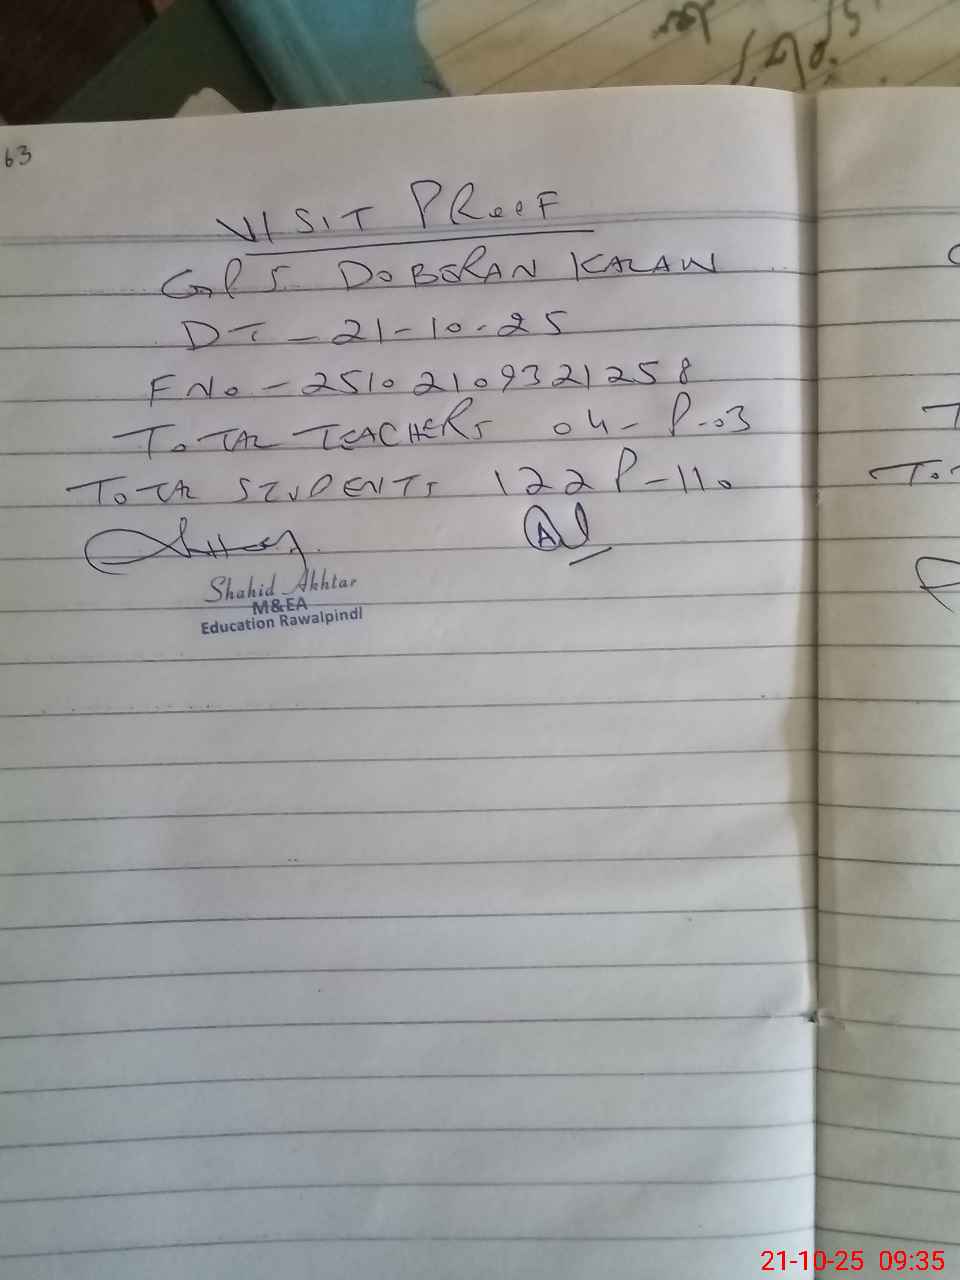 63
VISIT PROOF
GPS DOBERAN KALAN
DT - 21-10-25
F No - 25102109321258
TOTAL TEACHERS 04- P-03
TOTAL STUDENTS 122 P-110
Shahid Akhtar
M&EA
Education Rawalpindi
21-10-25 09:35